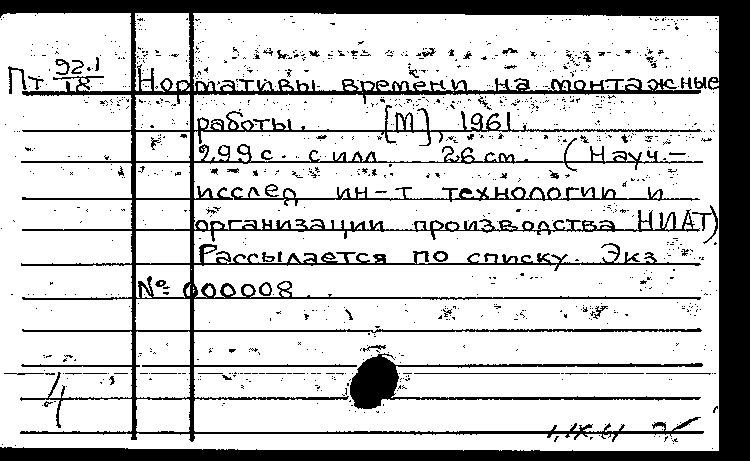 Пт 92.1/18 Нормативы времени на монтажные
работы. [М], 1961.
299 с. с илл. 26 см. (Науч.-
исслед ин-т технологии и
организации производства НИАТ)
Рассылается по списку. Экз
№ 000008.
4
1.IX.61